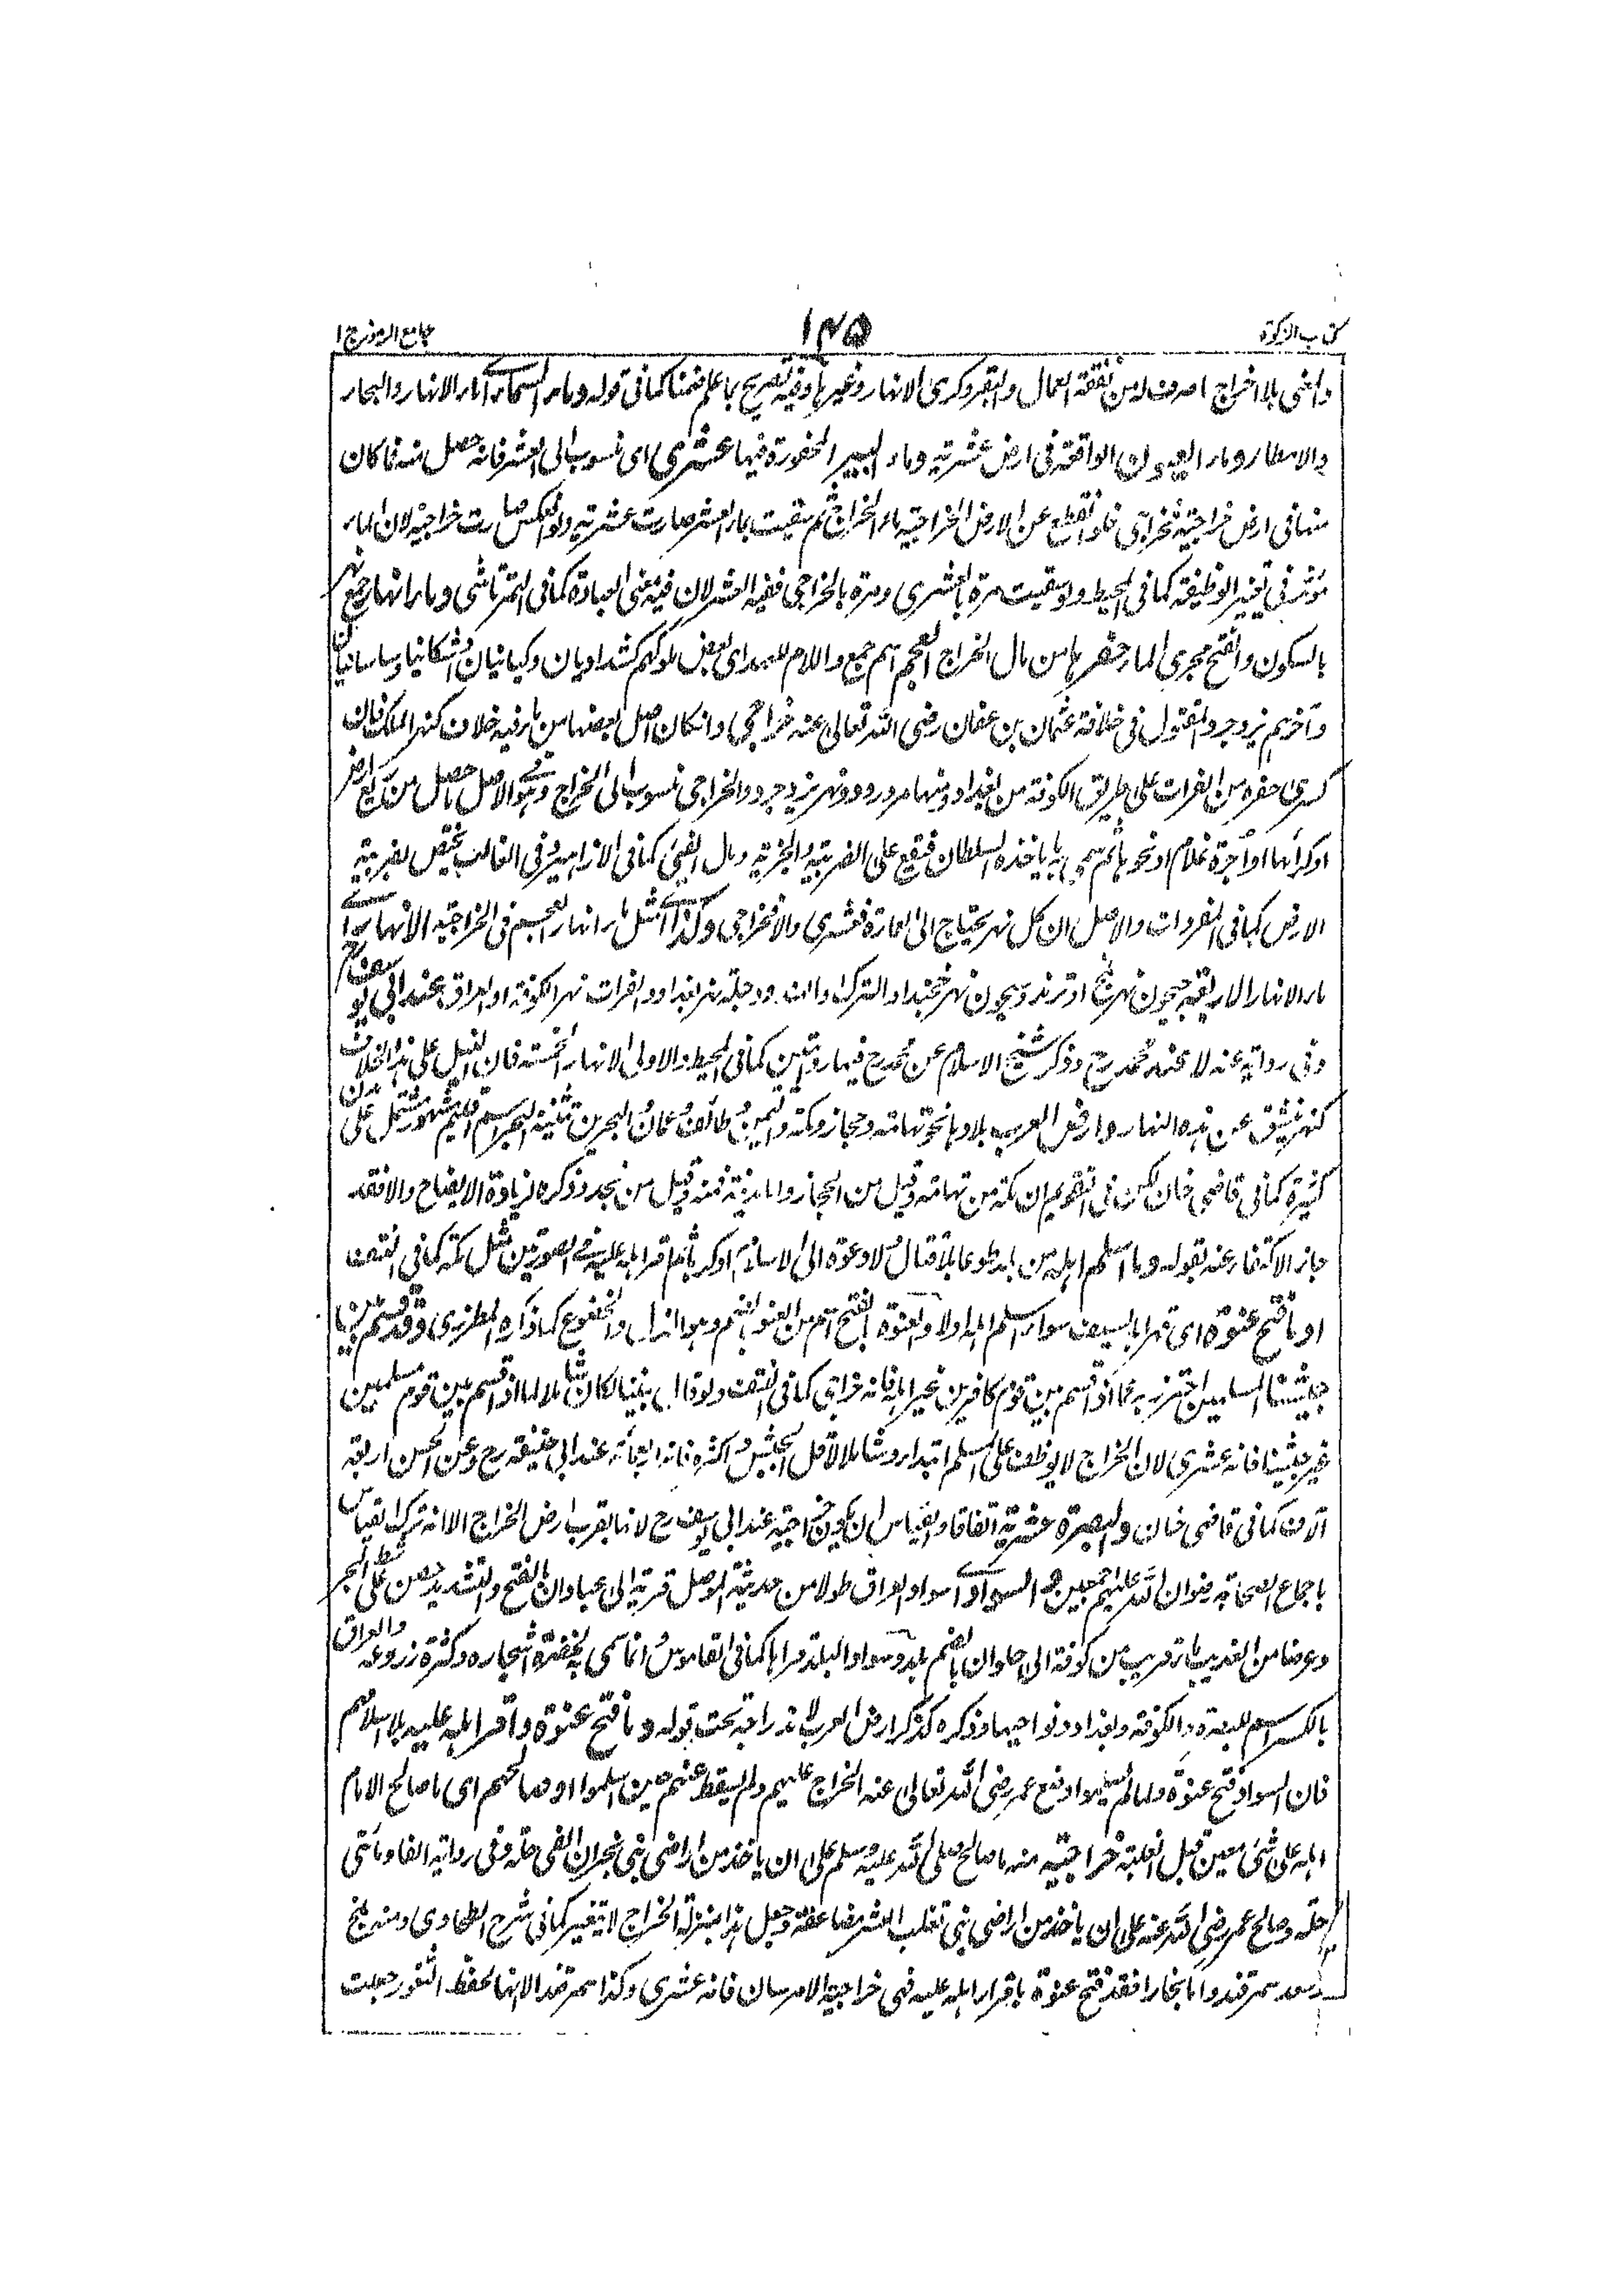 كتاب الزكوة
١٤٥
جامع الرموز ج ١
والمعنى بلا اخراج ما صرف له من نفقة العمال والبقر وكرى الانهار وغيرها وفيه تصريح بما علم ضمنا كما فى قوله وماء السماء اے ماء الانهار والبحار
والامطار وماء العيون الواقعة فى ارض عشرية وماء البير المحفورة فيها عشرى اى منسوب الى العشر فانه حصل منه فما كان
منها فى ارض خراجية فخراجى فلو انقطع عن الارض الخراجية ماء الخراج ثم سقيت بماء العشر صارت عشرية ولو بالعكس صارت خراجية لان الماء
مؤثر فى تغيير الوظيفة كما فى المحيط ولو سقيت مرة بالعشرى ومرة بالخراجى ففيه العشر لان فيه معنى العبادة كما فى التمرتاشى وماء انهار جمع نهر
بالسكون والفتح مجرى الماء حفرها من مال الخراج العجم اسم جمع واللام للعهد اى بعض ملوكهم كشداديان وكيانيان واشكانيان وساسانيان
وآخرهم يزدجرد المقتول فى خلافة عثمان بن عفان رضى الله تعالى عنه خراجى وان كان اصل بعضها من ماء فيه خلاف كنهر الملك فان
كسرى حفره من الفرات على طريق الكوفة من بغداد ومنها مرورود ونهر يزدجرد والخراجى منسوب الى الخراج وهو فى الاصل ما حصل من ريع ارض
او كرائها او اجرة غلام او نحوها ثم سمى به ما ياخذه السلطان فتقع على الضريبة والجزية ومال الفئ كما فى الازاهير وفى الغالب يختص بضريبة
الارض كما فى المفردات والاصل ان كل نهر يحتاج الى العمارة فعشرى والا فخراجى وكذا اے مثل ماء انهار العجم فى الخراجية الانهار اے
ماء الانهار الاربعة جيحون نهر بلخ او ترمذ وسيحون نهر خجند او الترك او الهند ودجلة نهر بغداد والفرات نهر الكوفة او العراق عند ابى يوسف رح
وفى رواية عنه لا عند محمد رح وذكر شيخ الاسلام عن محمد رح فيها روايتين كما فى المحيط والاولى الانهار الخمسة فان النيل على هذا الخلاف
كنهر ينشق عن هذه الانهار وارض العرب بلادها نحو تهامة وحجاز ومكة واليمن وطائف وعمان والبحرين تثنية البحر اسم اقليم مشهور مشتمل على مدن
كثيرة كما فى قاضى خان لكن فى التقويم ان مكة من تهامة وقيل من الحجاز والمدينة فمنه وقيل من نجد وذكره لزيادة الايضاح والا فقد
جاز الاكتفاء عنه بقوله وما اسلم اهله من بلد طوعا بلا قتال ولا دعوة الى الاسلام او كرها ثم اقر اهله عليه فى الصورتين مثل مكة كما فى النتف
او ما فتح عنوة اى قهرا بالسيف سواء اسلم اهله اولا والعنوة بالفتح اسم من العنو بالضم وهو الذل والخضوع كما ذكره المطرزى وقد قسم بين
جيشنا المسلمين احترز به عما اذا قسم بين قوم كافرين غير اهله فانه خراجى كما فى النتف ولو قال بيننا لكان شاملا لما اذا قسم بين قوم مسلمين
غير جيشنا فانه عشرى لان الخراج لا يوظف على المسلم ابتداء وشاملا لاقل الجيش واكثره فانه اربعمائة عند ابى حنيفة رح وعن الحسن اربعة
آلاف كما فى قاضى خان والبصرة عشرية اتفاقا والقياس ان يكون خراجية عند ابى يوسف رح لانها بقرب ارض الخراج الا انه ترك القياس
باجماع الصحابة رضوان الله عليهم اجمعين والسواد اے سواد العراق طولا من حديثة الموصل قرية الى عبادان بالفتح والتشديد حصن على شط البحر
وعرضا من العذيب ماء قريب من كوفة الى حلوان بالضم بلد وسواد البلد قراها كما فى القاموس وانما سمى به لخضرة اشجاره وكثرة زروعه والعراق
بالكسر اسم للبصرة والكوفة وبغداد ونواحيها وذكره كذكر ارض العرب لاندراجه تحت قوله وما فتح عنوة واقر اهله عليه بلا اسلامهم
فان السواد فتح عنوة ولما لم يسلموا وضع عمر رضى الله تعالى عنه الخراج عليهم ولم يسقط عنهم حين اسلموا او صالحهم اى ما صالح الامام
اهله على شئ معين قبل الغلبة خراجية منه ما صالح صلى الله عليه وسلم على ان ياخذ من اراضى بنى نجران الفى حلة وفى رواية الفا ومائتى
حلة وصالح عمر رضى الله عنه على ان ياخذ من اراضى بنى تغلب العشر مضاعفة وجعل هذا بمنزلة الخراج لا يتغير كما فى شرح الطحاوى ومنه بلخ
وسغد سمرقند واما بخارا فقد فتح عنوة باقرار اهله عليه فهى خراجية الا مرسان فانه عشرى وكذا سمرقند الا انها لحفظ الثغور جعلت